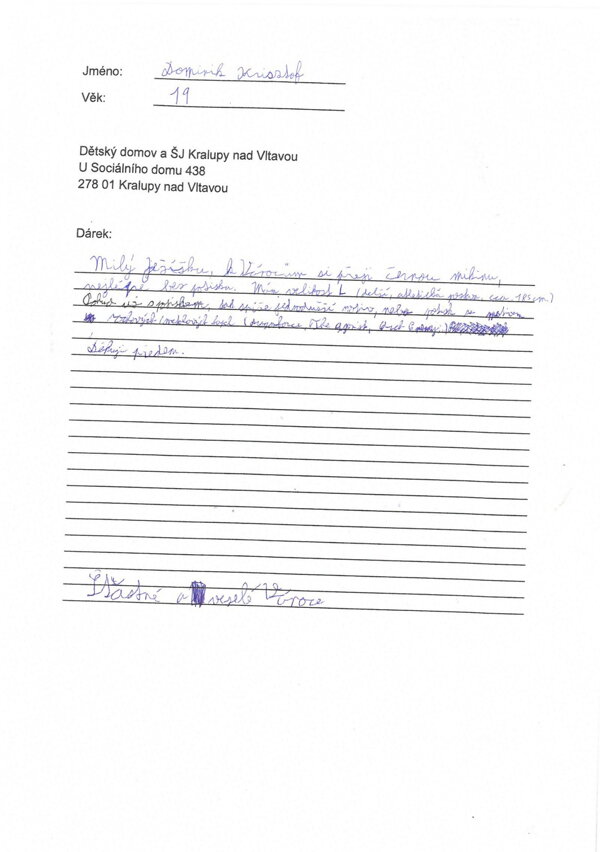 Jméno: Dominik Krisztof
Věk: 19
Dětský domov a ŠJ Kralupy nad Vltavou
U Sociálního domu 438
278 01 Kralupy nad Vltavou
Dárek:
Milý Ježíšku, k Vánocům si přeji černou mikinu,
nejlépe bez potisku. Mám velikost L (delší, atletická postava, cca. 185cm.)
Pokud už s potiskem, tak spíše jednodušší motiv, nebo potisk s
rockových/metalových kapel
Děkuji předem.
Šťastné a veselé Vánoce